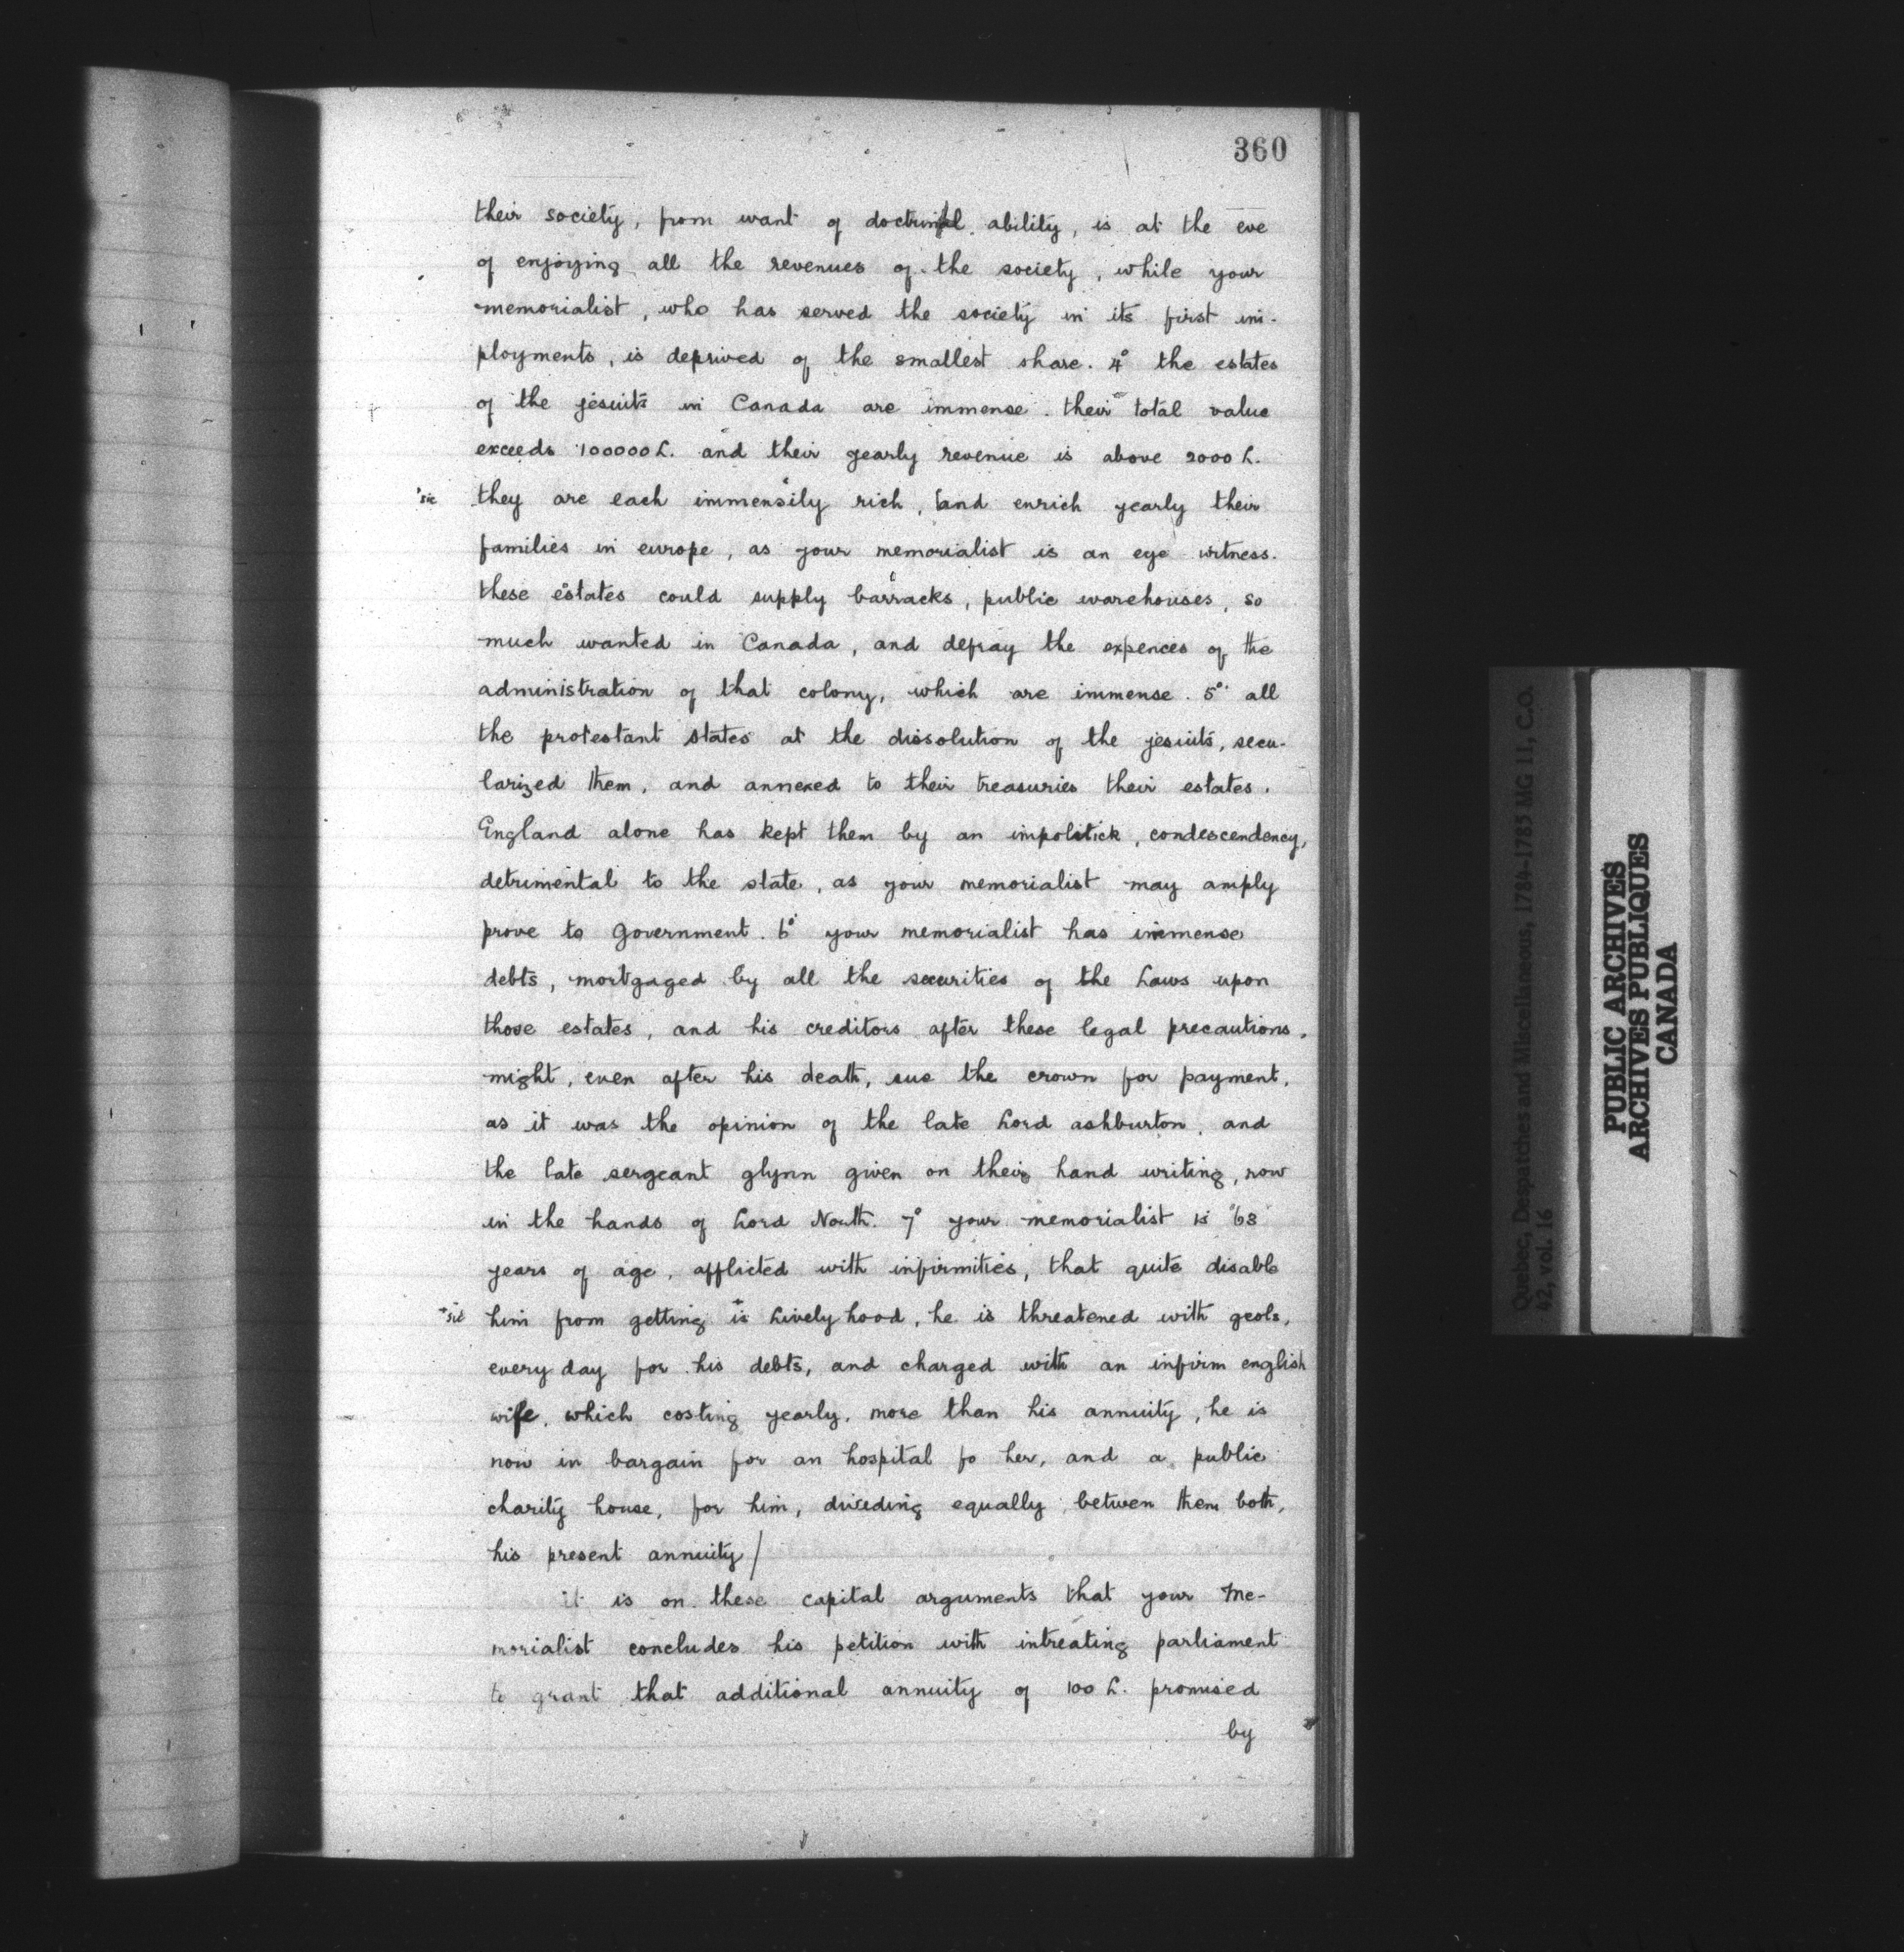 360
their society, from want of doctrinal ability, is at the eve
of enjoying all the revenues of the society, while your
memorialist, who has served the society in its first im-
ployments, is deprived of the smallest share. 4° the estates
of the jesuits in Canada are immense. their total value
exceeds 100000 L. and their yearly revenue is above 2000 L.
sic they are each immensily rich, and enrich yearly their
families in europe, as your memorialist is an eye witness.
these estates could supply barracks, public warehouses, so
much wanted in Canada, and defray the expences of the
administration of that colony, which are immense. 5° all
the protestant states at the dissolution of the jesuits, secu-
larized them, and annexed to their treasuries their estates.
England alone has kept them by an impolitick, condescendency,
detrimental to the state, as your memorialist may amply
prove to government. 6° your memorialist has immense
debts, mortgaged by all the securities of the Laws upon
those estates, and his creditors after these legal precautions,
might, even after his death, sue the crown for payment,
as it was the opinion of the late Lord ashburton, and
the late sergeant glynn given on their hand writing, now
in the hands of Lord North. 7° your memorialist is 68
years of age, afflicted with infirmities, that quite disable
+sic him from getting is+ Lively hood, he is threatened with geols,
every day for his debts, and charged with an infirm english
wife, which costing yearly, more than his annuity, he is
now in bargain for an hospital fo her, and a public
charity house, for him, dividing equally between them both,
his present annuity/
it is on these capital arguments that your Me-
morialist concludes his petition with intreating parliament
to grant that additional annuity of 100 L. promised
by
Quebec, Despatches and Miscellaneous, 1784-1785 MG 11, C.O.
42, vol. 16
PUBLIC ARCHIVES
ARCHIVES PUBLIQUES
CANADA